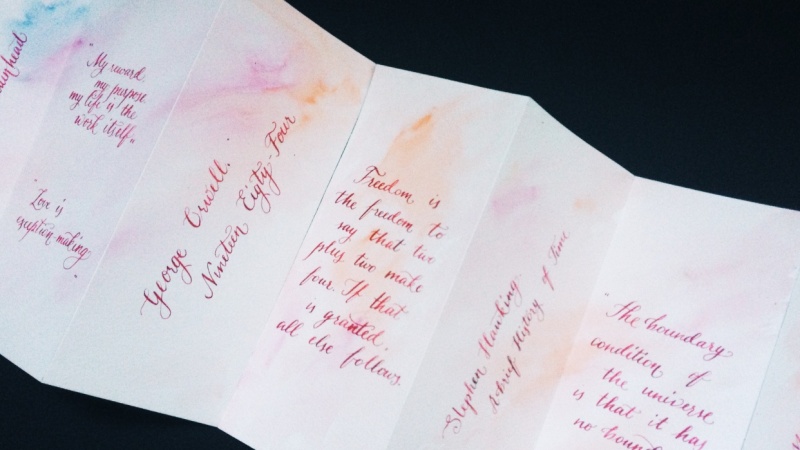 "My reward,
my purpose,
my life is the
work itself."
"Love is
exception-making
."
George Orwell.
Nineteen Eigty-Four
Freedom is
the freedom to
say that two
plus two make
four. If that
is granted,
all else follows.
Stephen Hawking.
A Brief History of Time
"The boundary
condition of
the universe
is that it has
no